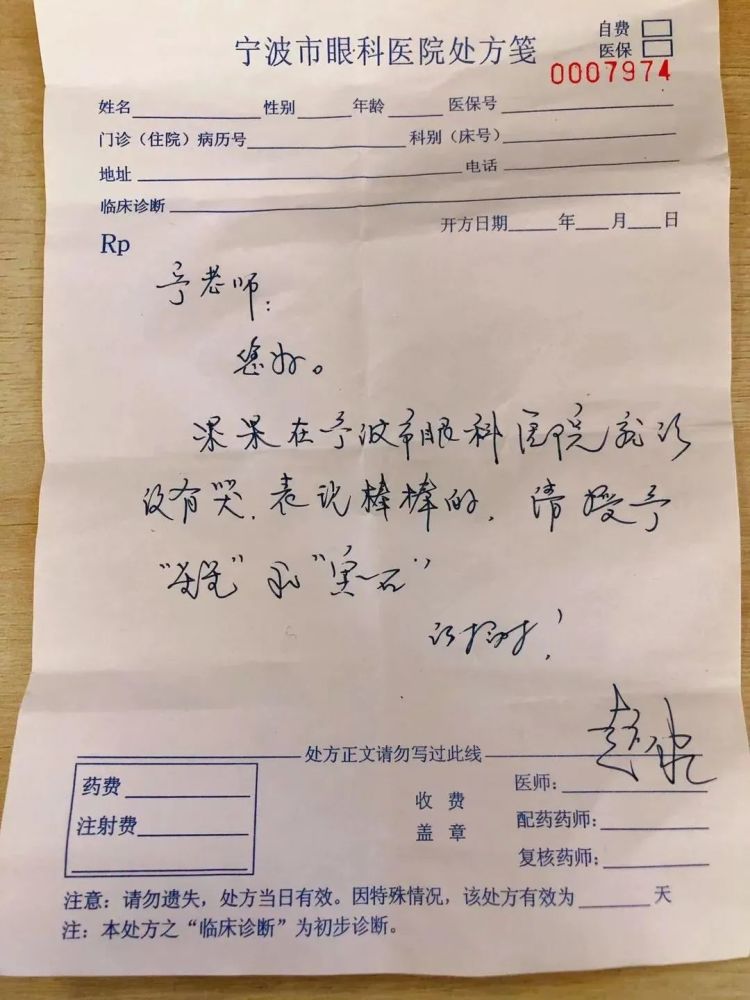 宁波市眼科医院处方笺
自费
医保
0007974
姓名 性别 年龄 医保号
门诊（住院）病历号 科别（床号）
地址 电话
临床诊断
开方日期 年 月 日
Rp
宁老师：
您好。
果果在宁波市眼科医院就诊
没有哭，表现棒棒的，请授予
“ ”和“宝石”
谢谢！
处方正文请勿写过此线
药费
注射费
收费
盖章
医师：
配药药师：
复核药师：
注意：请勿遗失，处方当日有效。因特殊情况，该处方有效为 天
注：本处方之“临床诊断”为初步诊断。